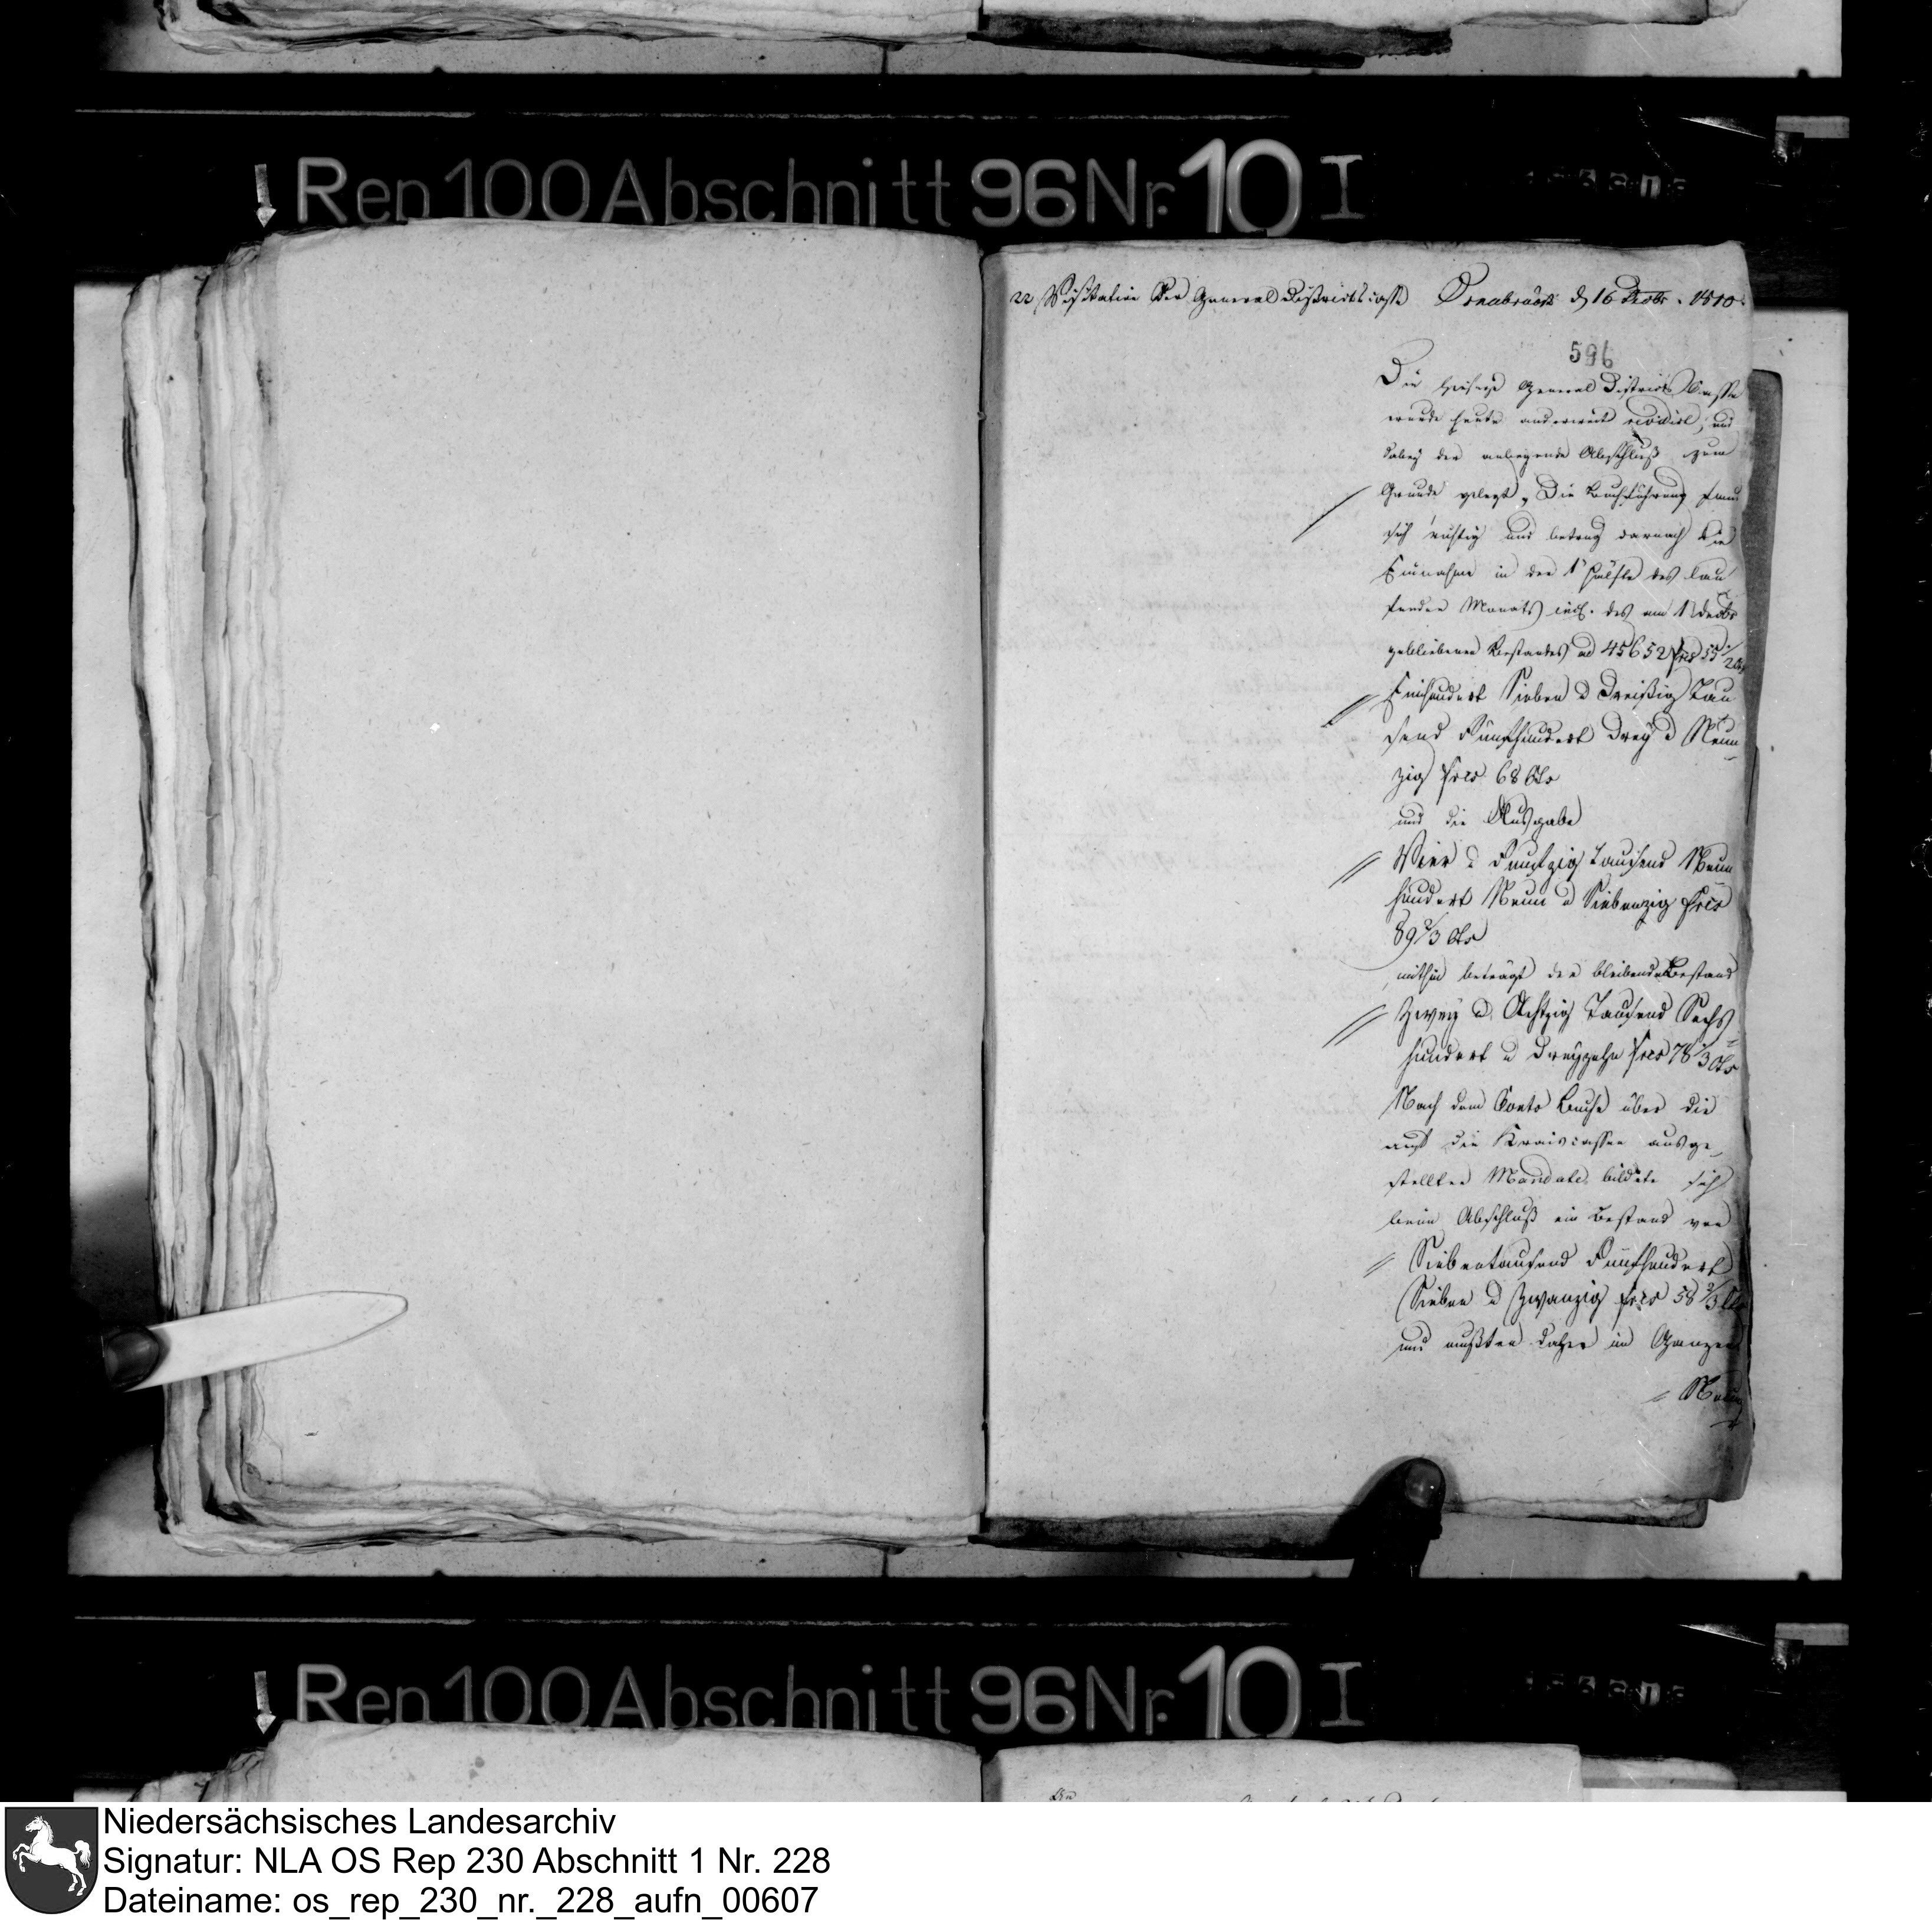 Rep 100 Abschnitt 96 Nr. 10 I
22 Visitation der General Districtscasse Osnabrück d 16 Decbr. 1810.
596
Die hiesige General Districts Casse
wurde heute anderweit revidirt, und
dabey der anliegende Abschluß zum
Grunde gelegt. Die Buchführung fand
sich richtig und betrug darnach die
Einnahme in der 1t Hälfte des lau
fenden Monats incl. des am 1 Decbr
gebliebenen Bestandes ad 45652 frcs 55
Einhundert Sieben u Dreißig Tau
send Fünfhundert Drey u Neun
zig frcs 68 Cts
und die Ausgabe
Vier u Funfzig Tausend Neun
hundert Neun u Siebenzig frcs
89 2/3 Cts
mithin beträgt der bleibende Bestand
Zwey u Achtzig Tausend Sechs
hundert u Dreyzehn frcs 78 1/3 Cts
Nach dem Conto Buche über die
auf die Kreiscassen ausge
stellten Mandate bildete sich
beim Abschluß ein Bestand von
Siebentausend Fünfhundert
Sieben u Zwanzig frcs 58 2/3 Cts
und mußten daher im Ganzen
Neun
Rep 100 Abschnitt 96 Nr. 10 I
Niedersächsisches Landesarchiv
Signatur: NLA OS Rep 230 Abschnitt 1 Nr. 228
Dateiname: os_rep_230_nr._228_aufn_00607